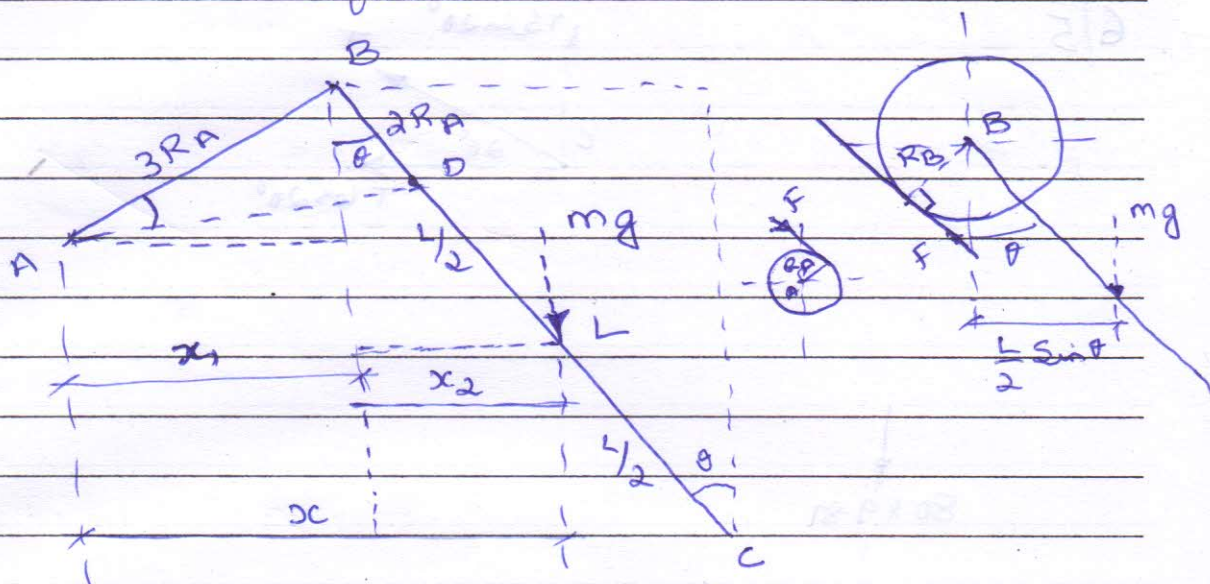 B
3RA
2RA
θ
D
A
L/2
mg
L
x₁
x₂
L/2
θ
x
C
B
RB
F
mg
F
θ
A
L/2 Sinθ